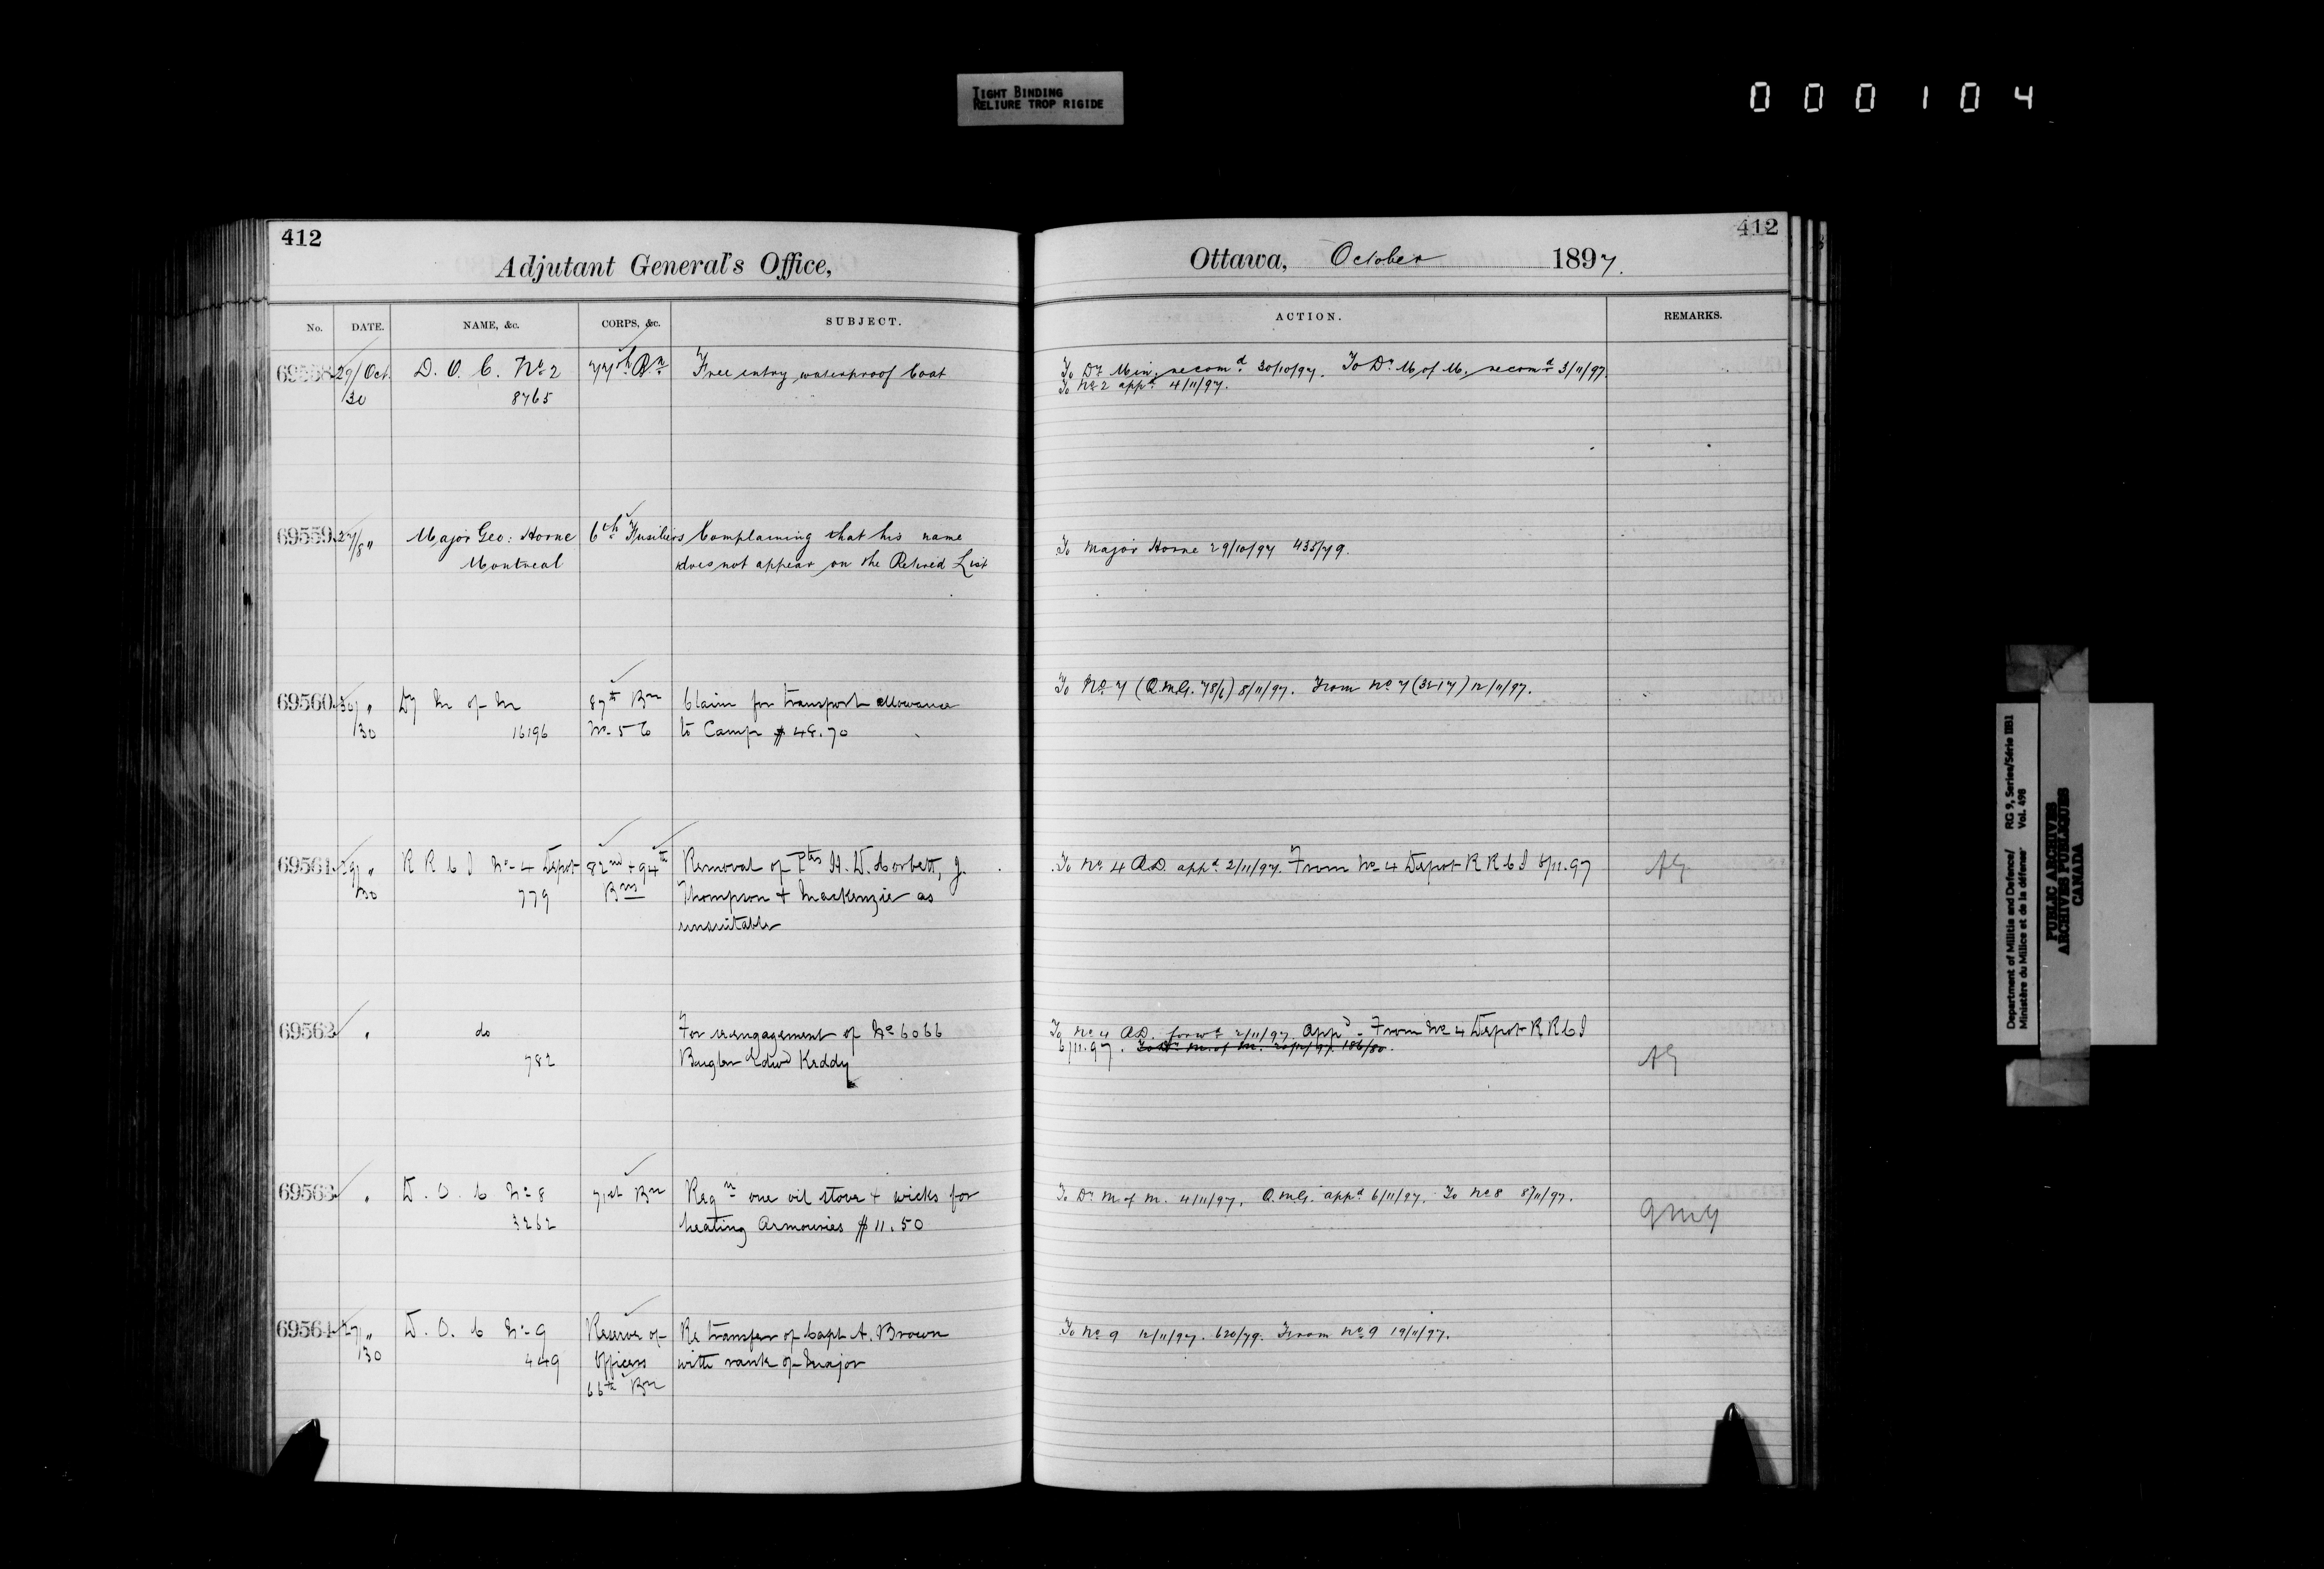 TIGHT BINDING
RELIURE TROP RIGIDE
000104
412
Adjutant General's Office,
No. DATE. NAME, &c. CORPS, &c. SUBJECT.
69558 29/Oct. D. O. C. No 2 77th Bn Free entry waterproof Coat
/30 8765
69559 27/8 " Major Geo: Horne 6th Fusiliers Complaining that his name
Montreal does not appear on the Retired List
69560 30/ " Dy M of M 87th Bn Claim for transport allowance
/30 16196 No 5 Co to Camp $48.70
69561 29/ " R R C I No 4 Depot 82nd + 94th Removal of Ptes H. D. Corbett, J.
/30 779 Bns Thompson + Mackenzie as
unsuitable
69562 " do For reengagement of No 6066
782 Bugler Edwd Keddy
69563 " D. O. C No 8 71st Bn Reqn one oil stove + wicks for
3262 heating Armouries $11.50
69564 27/ " D. O. C No 9 Reserve of Re transfer of Capt A. Brown
/30 449 Officers with rank of Major
66th Bn
412
Ottawa, October 1897.
ACTION. REMARKS.
To Dy Min. recomd 30/10/97. To Dy M of M. recomd 3/11/97.
To No 2 appd 4/11/97.
To Major Horne 29/10/97 435/79.
To No 7 (Q.M.G. 78/6) 8/11/97. From No 7 (3217) 12/11/97.
To No 4 A.D. appd 2/11/97. From No 4 Depot R R C I 5/11.97 AG
To No 4 A.D. forwd 2/11/97. Appd. From No 4 Depot R R C I
6/11.97. To Dy M of M. 20/12/97. 186/80.
AG
To Dy M of M. 4/11/97. Q.M.G. appd 6/11/97. To No 8 8/11/97.
QMG
To No 9 12/11/97. 620/79. From No 9 19/11/97.
Department of Militia and Defence/ RG 9, Series/Série IIB1
Ministère du Milice et de la défense Vol. 498
PUBLIC ARCHIVES
ARCHIVES PUBLIQUES
CANADA